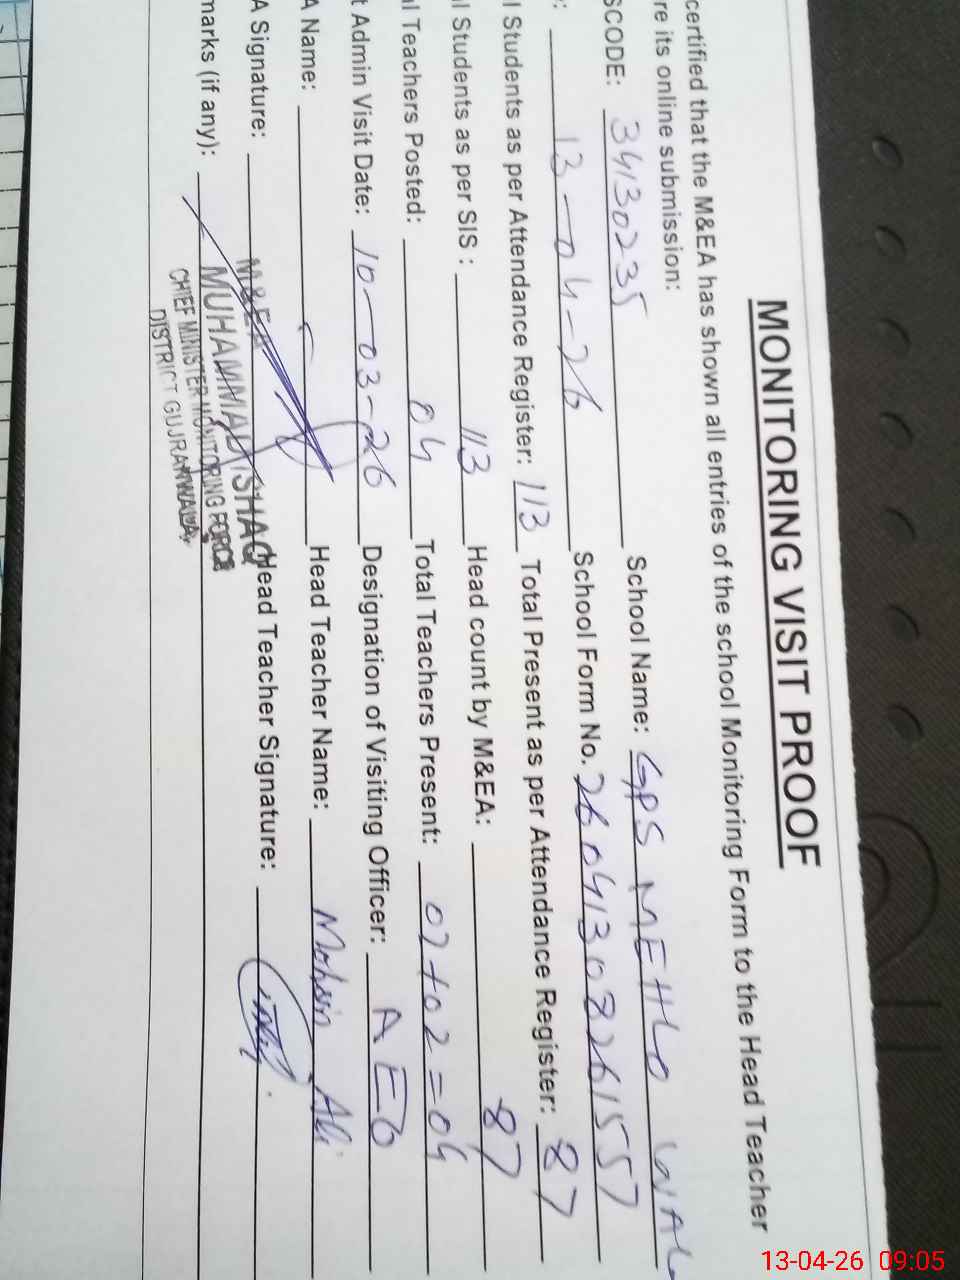 MONITORING VISIT PROOF
certified that the M&EA has shown all entries of the school Monitoring Form to the Head Teacher
re its online submission:
SCODE: 34130235 School Name: GPS MEHLO WAL
: 13-04-26 School Form No. 26041308261557
l Students as per Attendance Register: 113 Total Present as per Attendance Register: 87
l Students as per SIS : 113 Head count by M&EA: 87
l Teachers Posted: 04 Total Teachers Present: 02+02=04
t Admin Visit Date: 10-03-26 Designation of Visiting Officer: AEO
A Name: Head Teacher Name: Mohsin Ali
A Signature: Head Teacher Signature:
marks (if any):
M&EA
MUHAMMAD ISHAQ
CHIEF MINISTER MONITORING FORCE
DISTRICT GUJRANWALA
13-04-26 09:05